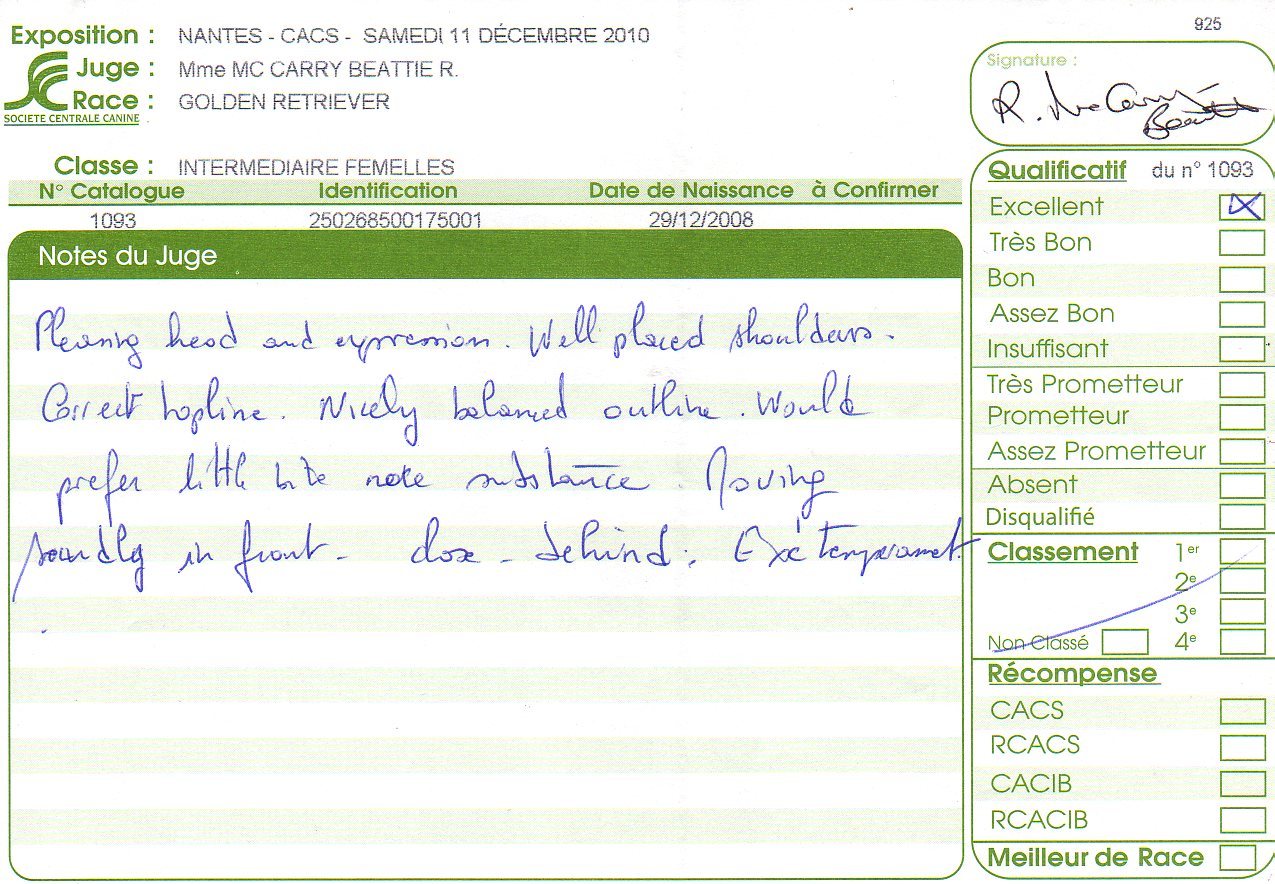 925
Exposition : NANTES - CACS - SAMEDI 11 DÉCEMBRE 2010
Juge : Mme MC CARRY BEATTIE R.
Race : GOLDEN RETRIEVER
SOCIETE CENTRALE CANINE
Classe : INTERMEDIAIRE FEMELLES
N° Catalogue Identification Date de Naissance à Confirmer
1093 250268500175001 29/12/2008
Notes du Juge
Pleasing head and expression. Well placed shoulders.
Correct topline. Nicely balanced outline. Would
prefer little bite note substance. Moving
soundly in front - close - behind. Exc temperamet
Signature :
R. McCarry
Beattie
Qualificatif du n° 1093
Excellent
Très Bon
Bon
Assez Bon
Insuffisant
Très Prometteur
Prometteur
Assez Prometteur
Absent
Disqualifié
Classement 1er
2e
3e
Non Classé 4e
Récompense
CACS
RCACS
CACIB
RCACIB
Meilleur de Race